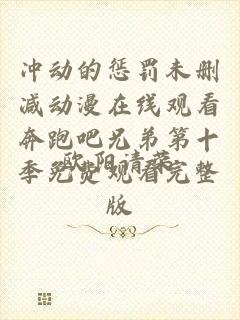 冲动的惩罚未删
减动漫在线观看
奔跑吧兄弟第十
季免费观看完整
版
欧阳清荣